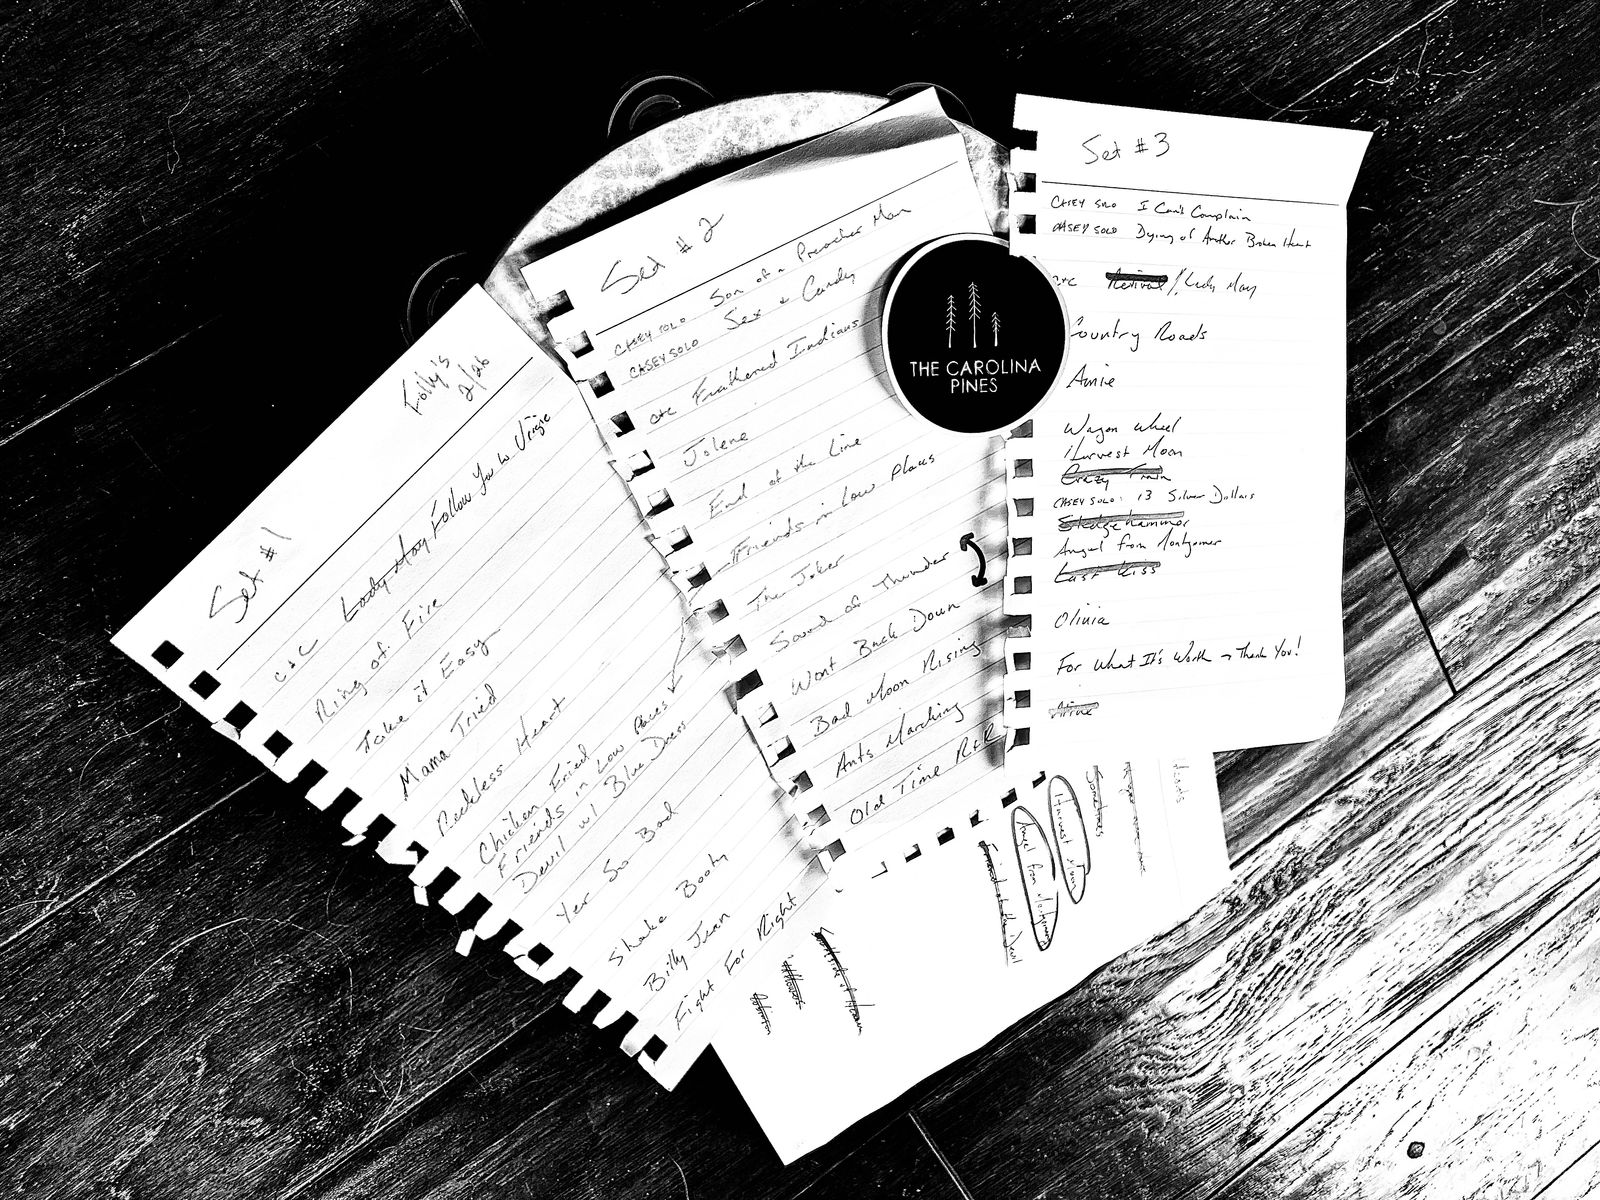 Set #1
Folly's
2/26
C+C Lady May Follow You to Virgie
Ring of Fire
Take it Easy
Mama Tried
Reckless Heart
Chicken Fried
Friends in Low Places
Devil w/ Blue Dress
Yer So Bad
Shake Booty
Billy Jean
Fight For Right
Set #2
CASEY SOLO Son of a Preacher Man
CASEY SOLO Sex + Candy
C+C Feathered Indians
Jolene
End of the Line
Friends in Low Places
The Joker
Sound of Thunder
Wont Back Down
Bad Moon Rising
Ants Marching
Old Time R+R
THE CAROLINA
PINES
Set #3
CASEY SOLO I Can't Complain
CASEY SOLO Dying of Another Broken Heart
C+C Revival / Lady May
Country Roads
Amie
Wagon Wheel
Harvest Moon
Crazy Train
CASEY SOLO: 13 Silver Dollars
Sledgehammer
Angel from Montgomery
Last Kiss
Olivia
For What It's Worth → Thank You!
Harvest Moon
Angel from Montgomery
Friend of the Devil
Sometimes